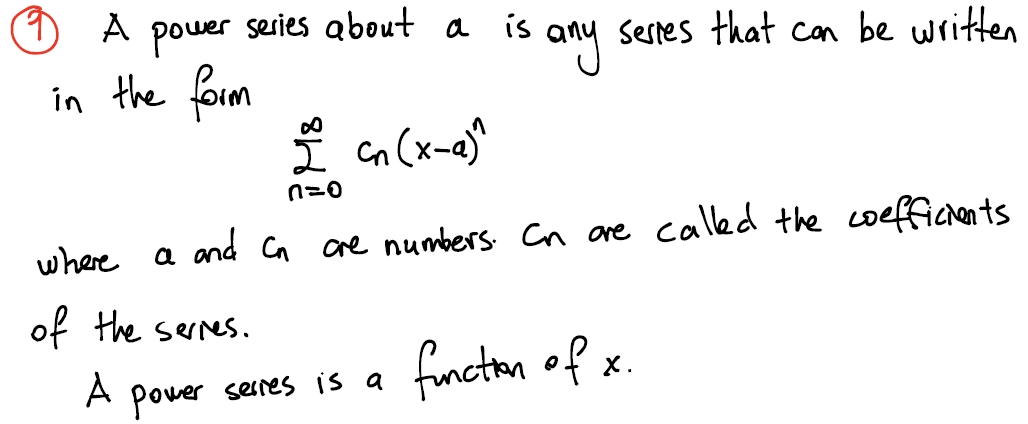 ⑨ A power series about a is any series that can be written
in the form
∞
Σ cn (x-a)ⁿ
n=0
where a and cn are numbers. cn are called the coefficients
of the series.
A power series is a function of x.